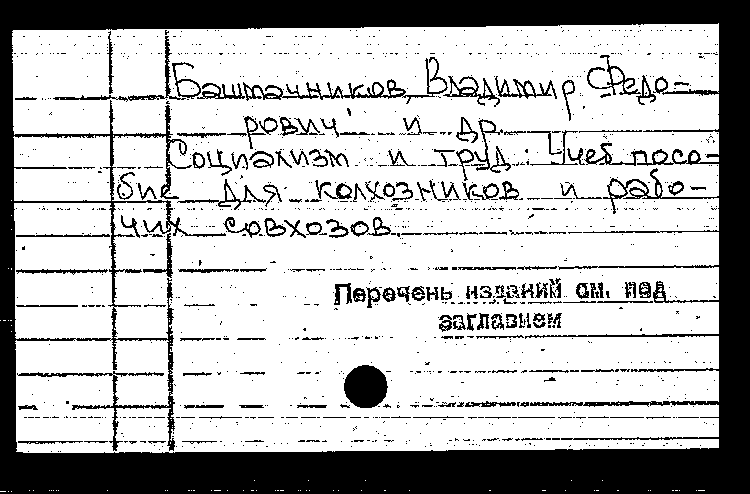 Баштачников, Владимир Федо-
рович и др.
Социализм и труд: Учеб. посо-
бие для колхозников и рабо-
чих совхозов.
Перечень изданий см. под
заглавием